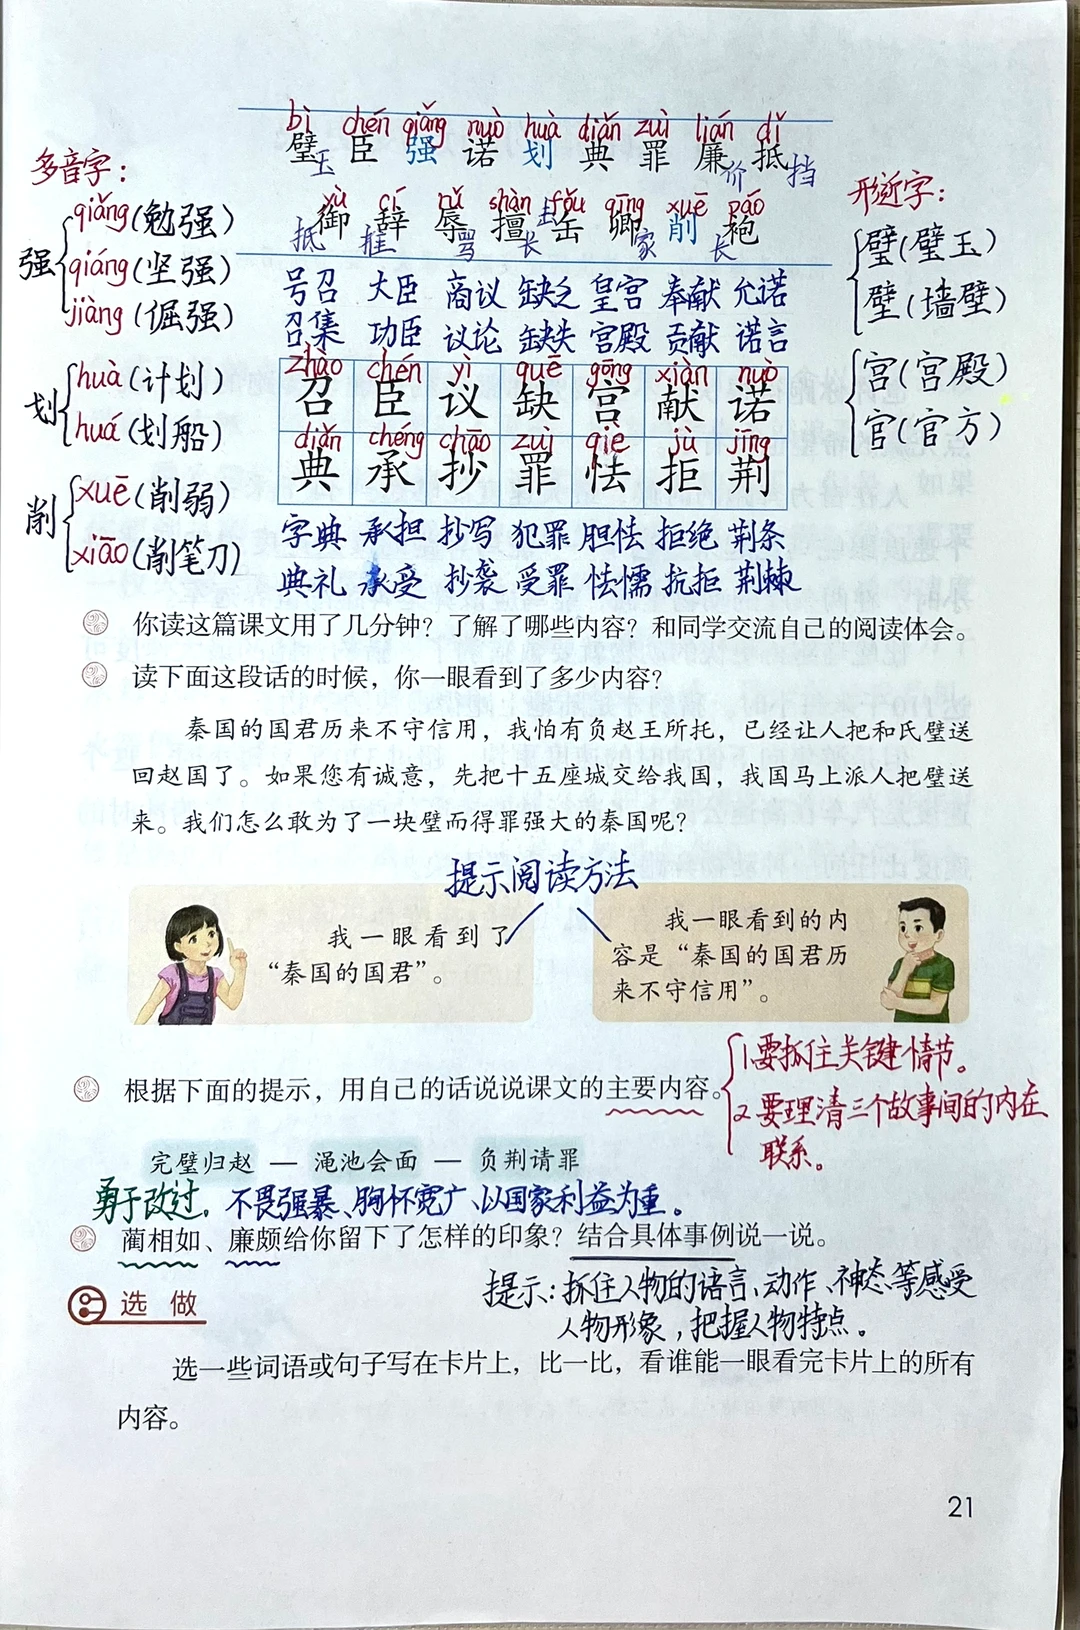 bì chén qiǎng nuò huà diǎn zuì lián dǐ
璧 臣 强 诺 划 典 罪 廉 抵
玉 价 挡
yù cí rǔ shàn fǒu qīng xuē páo
御 辞 辱 擅 缶 卿 削 袍
抵 推 骂 长 击 家 长
多音字：
强
qiǎng(勉强)
qiáng(坚强)
jiàng(倔强)
划
huà(计划)
huá(划船)
削
xuē(削弱)
xiāo(削笔刀)
形近字：
璧(璧玉)
壁(墙壁)
宫(宫殿)
官(官方)
号召 大臣 商议 缺乏 皇宫 奉献 允诺
召集 功臣 议论 缺失 宫殿 贡献 诺言
zhào chén yì quē gōng xiàn nuò
召 臣 议 缺 宫 献 诺
diǎn chéng chāo zuì qiè jù jīng
典 承 抄 罪 怯 拒 荆
字典 承担 抄写 犯罪 胆怯 拒绝 荆条
典礼 承受 抄袭 受罪 怯懦 抗拒 荆棘
你读这篇课文用了几分钟？了解了哪些内容？和同学交流自己的阅读体会。
读下面这段话的时候，你一眼看到了多少内容？
秦国的国君历来不守信用，我怕有负赵王所托，已经让人把和氏璧送
回赵国了。如果您有诚意，先把十五座城交给我国，我国马上派人把璧送
来。我们怎么敢为了一块璧而得罪强大的秦国呢？
提示阅读方法
我一眼看到了
“秦国的国君”。
我一眼看到的内
容是“秦国的国君历
来不守信用”。
根据下面的提示，用自己的话说说课文的主要内容。
1.要抓住关键情节。
2 要理清三个故事间的内在
联系。
完璧归赵 — 渑池会面 — 负荆请罪
勇于改过。不畏强暴、胸怀宽广、以国家利益为重。
蔺相如、廉颇给你留下了怎样的印象？结合具体事例说一说。
提示：抓住人物的语言、动作、神态等感受
人物形象，把握人物特点。
选做
选一些词语或句子写在卡片上，比一比，看谁能一眼看完卡片上的所有
内容。
21